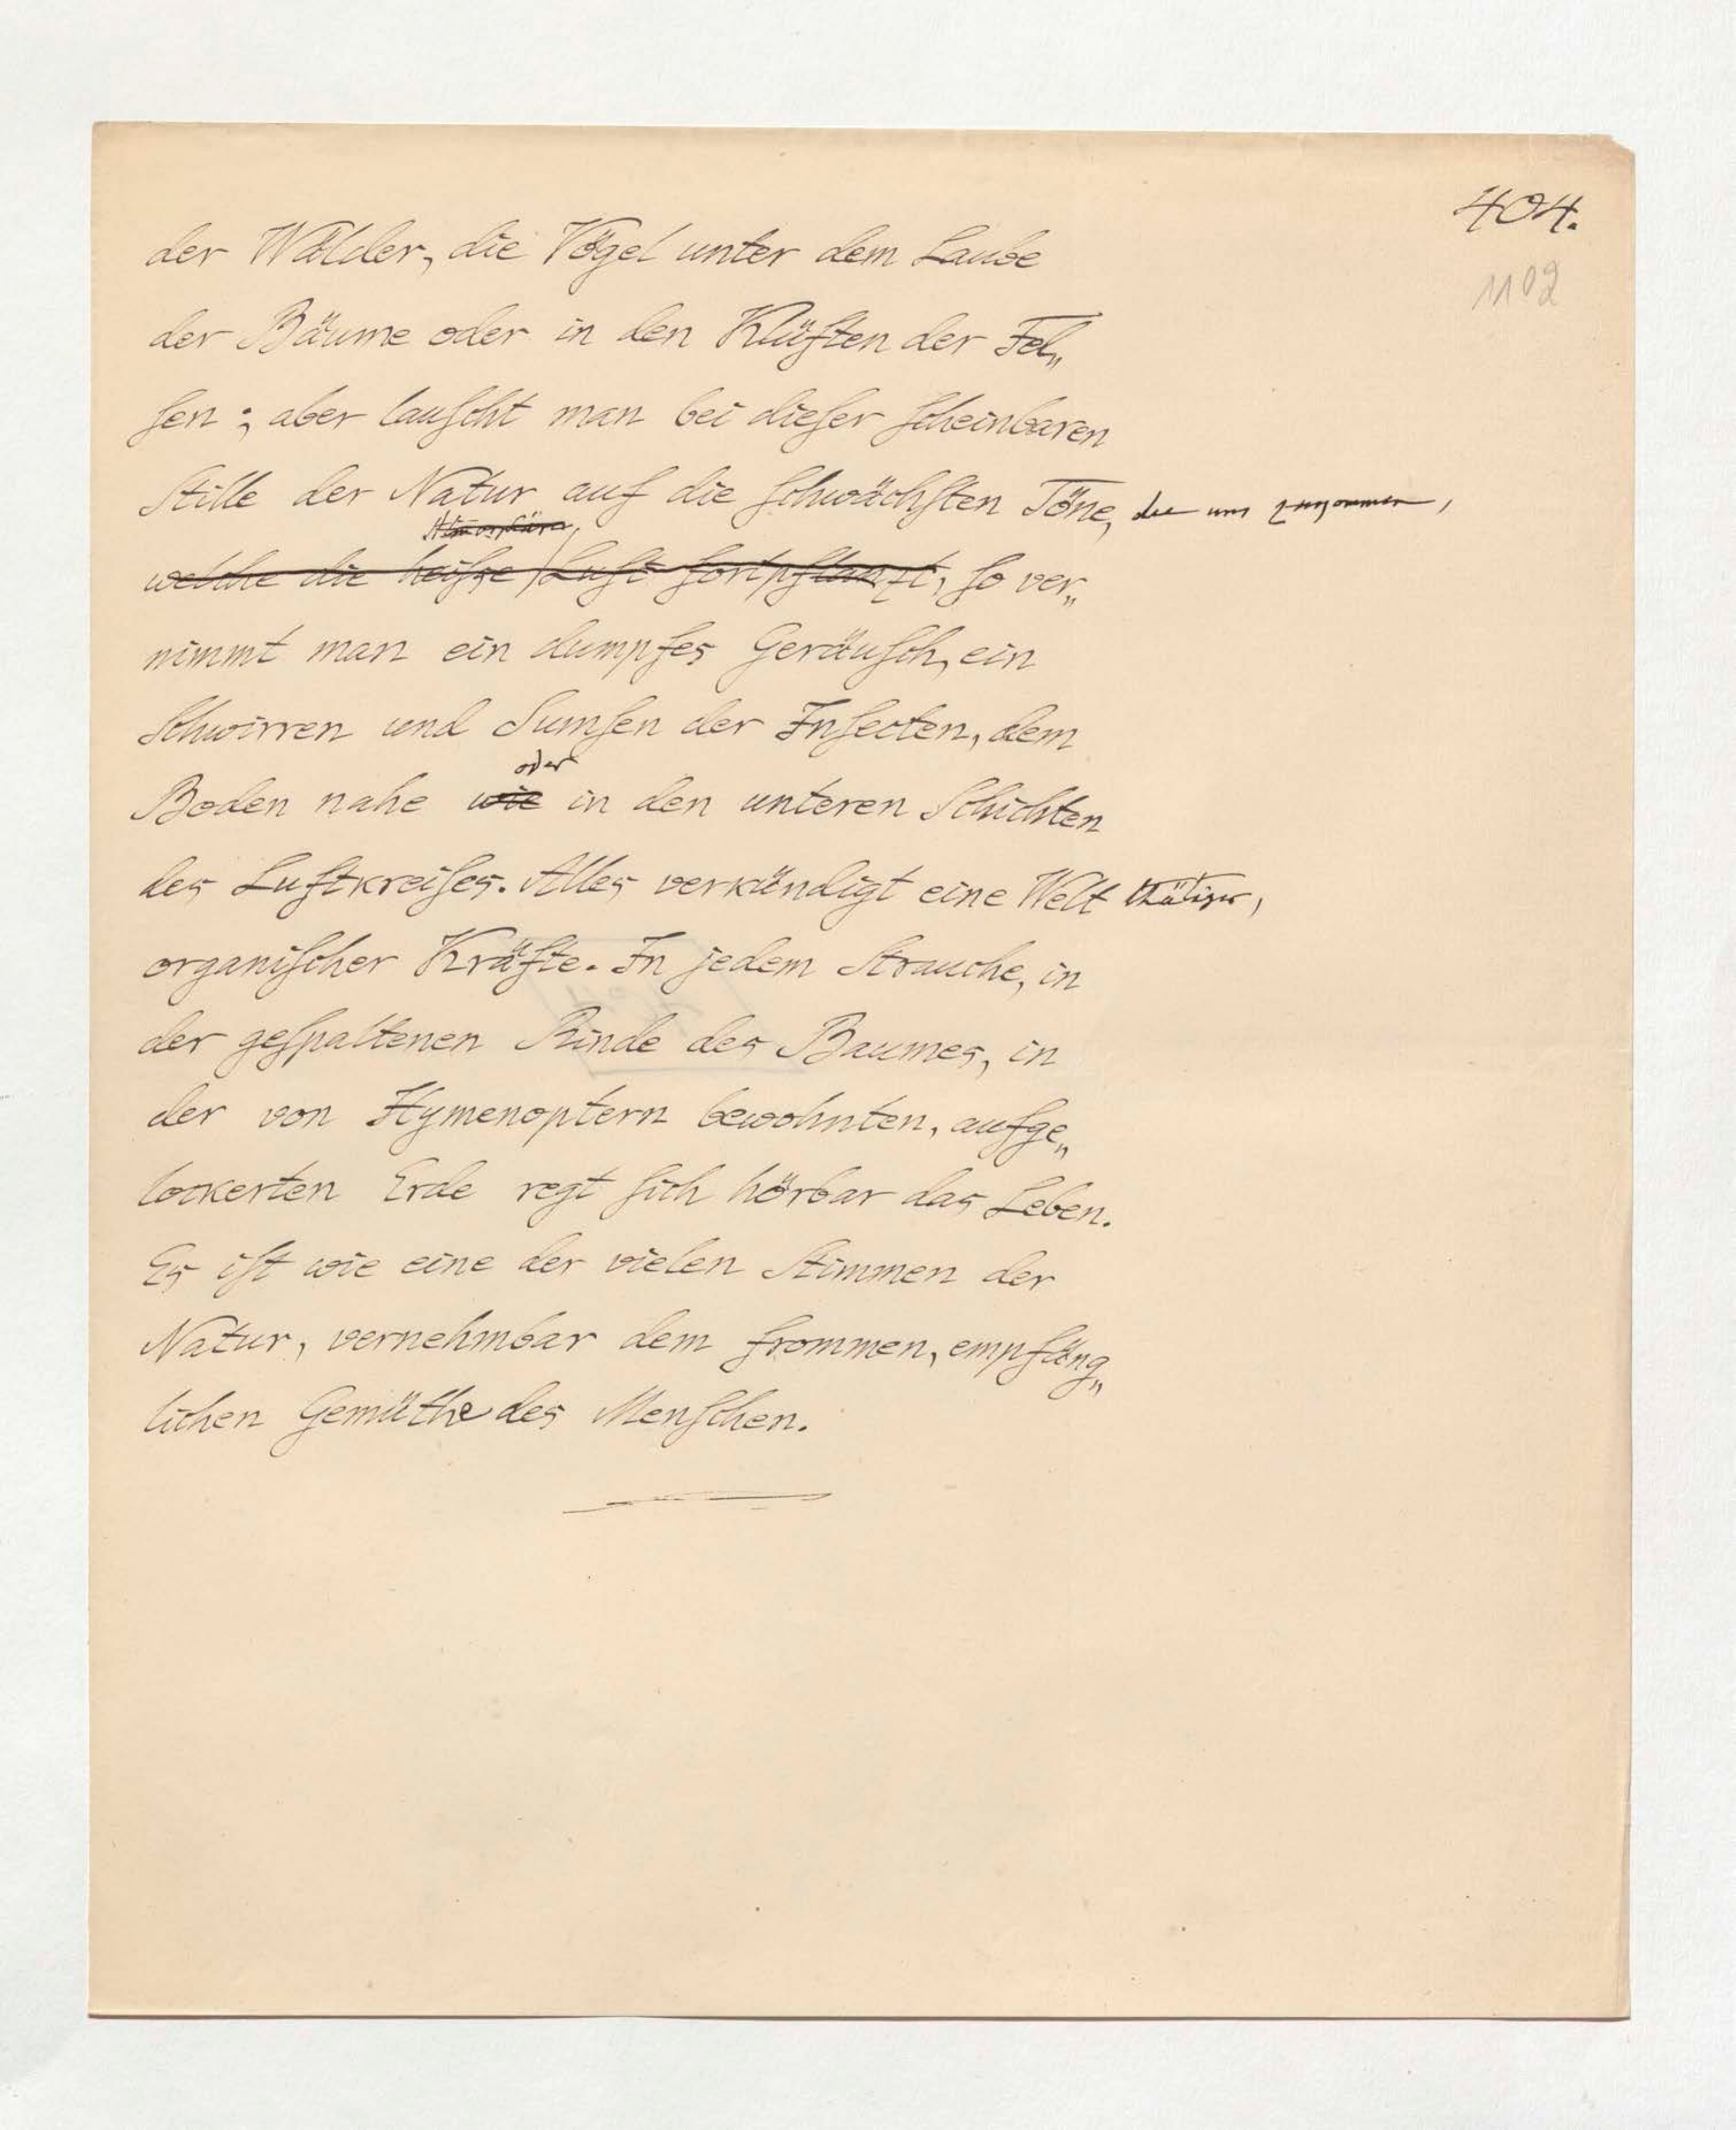 404.
1102
der Wälder, die Vögel unter dem Laube
der Bäume oder in den Klüften der Fel„
ſen; aber lauſcht man bei dieſer ſcheinbaren
Stille der Natur auf die ſchwächſten Töne, die uns zukommen,
Atmosphäre,
welche die heiſse Luft fortpflanzt, ſo ver„
nimmt man ein dumpfes Geräuſch, ein
Schwirren und Sumſen der Inſecten, dem
oder
Boden nahe wie in den unteren Schichten
des Luftkreiſes. Alles verkündigt eine Welt thätiger,
organiſcher Kräfte. In jedem Strauche, in
der geſpaltenen Rinde des Baumes, in
der von Hymenoptern bewohnten, aufge„
lockerten Erde regt ſich hörbar das Leben.
Es iſt wie eine der vielen Stimmen der
Natur, vernehmbar dem frommen, empfäng„
lichen Gemüthe des Menſchen.